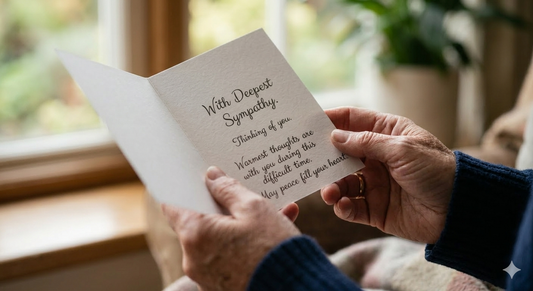 With Deepest
Sympathy.
Thinking of you.
Warmest thoughts are
with you during this
difficult time.
May peace fill your heart.